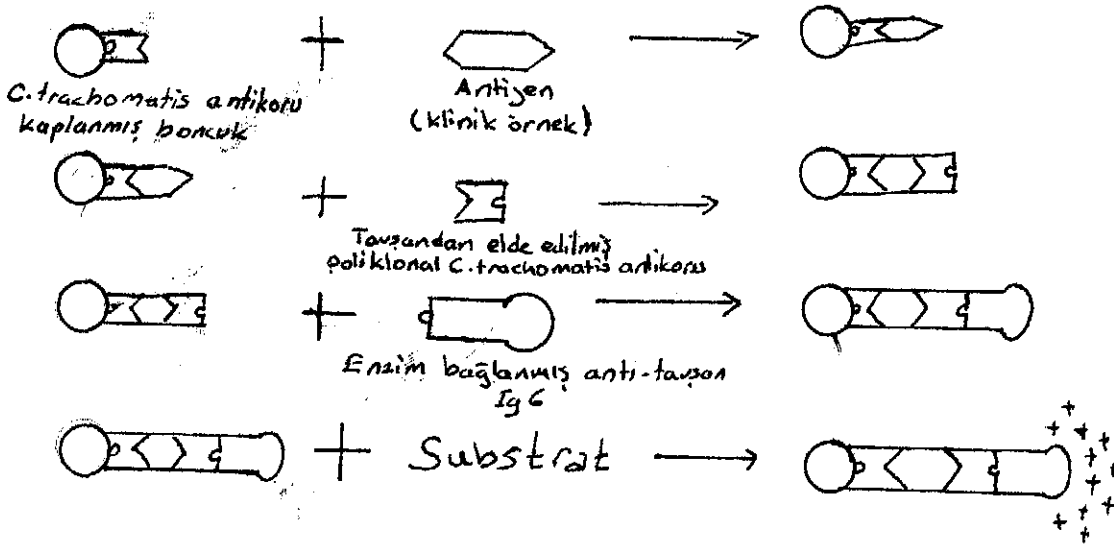 C.trachomatis antikoru
kaplanmış boncuk
Antijen
(klinik örnek)
Tavşandan elde edilmiş
poliklonal C.trachomatis antikoru
Enzim bağlanmış anti-tavşan
Ig G
Substrat